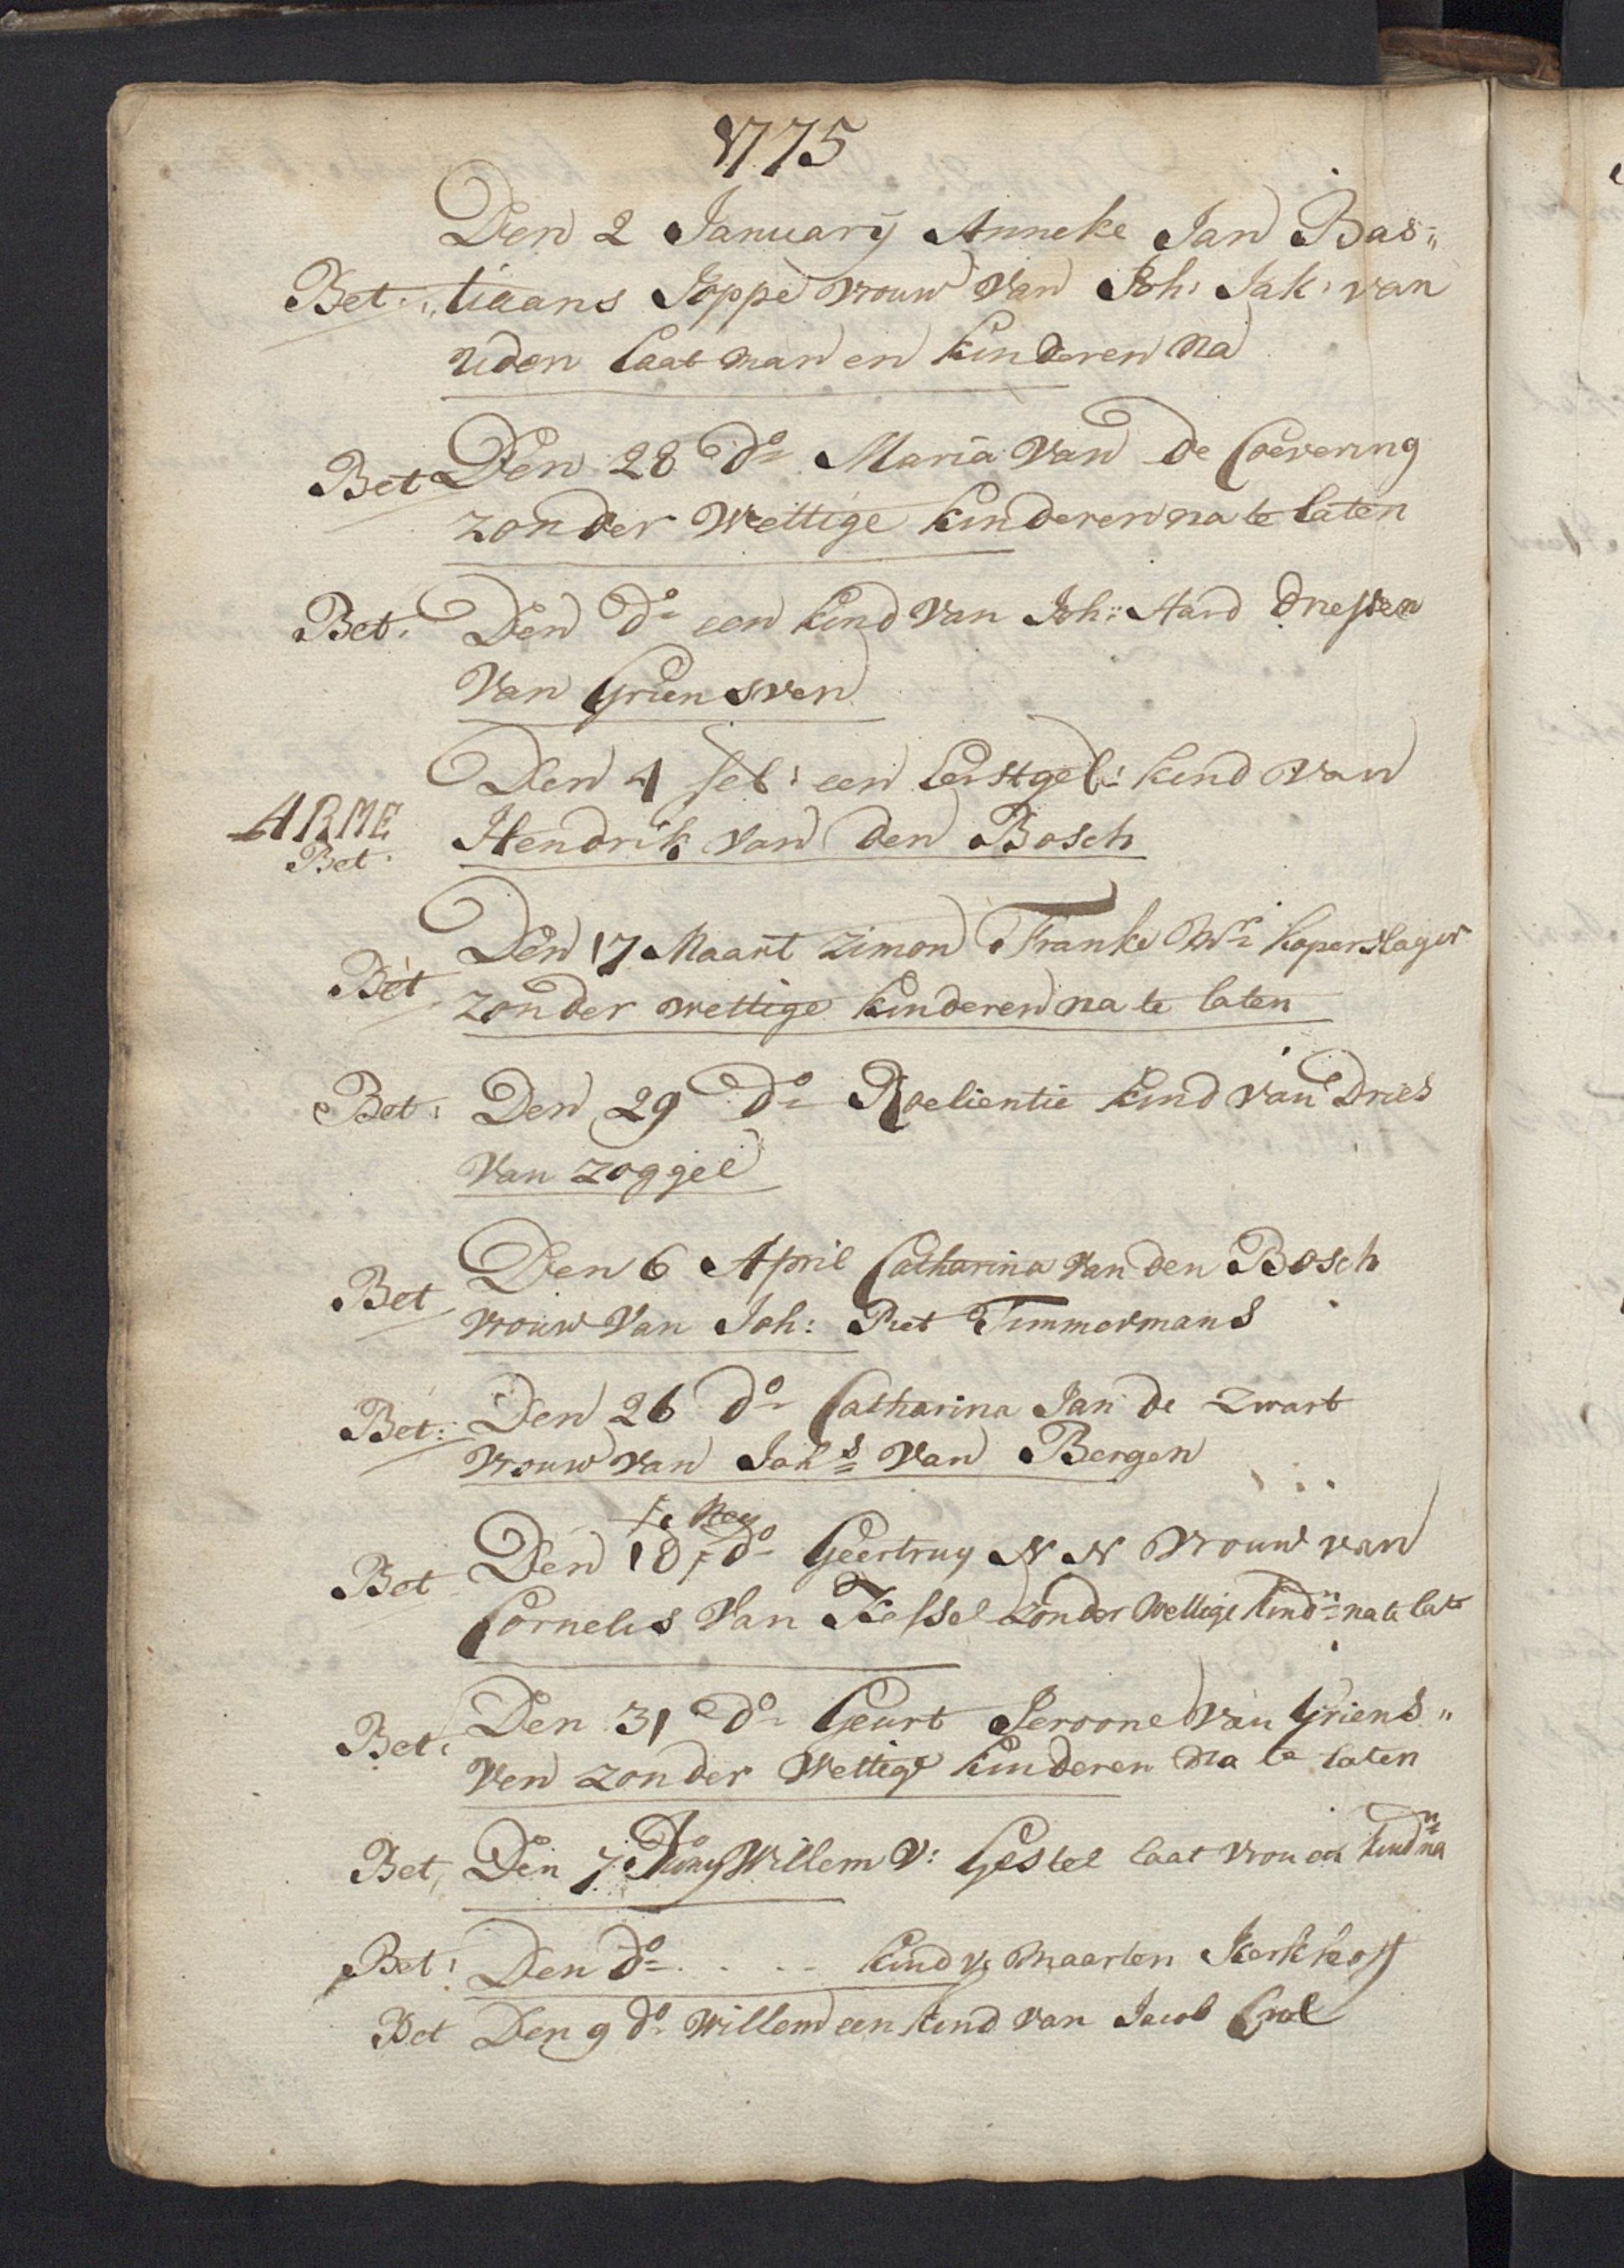 1775
Den 2 Januarij Anneke Jan Bas„
Bet: „tiaans Joppe vrouw van Joh: Jak: van
uden laat man en kinderen na
Bet Den 28 do Maria van de Coevering
zonder Wettige kinderen na te laten
Bet: Den do een kind van Joh: Hard Driessen
van Griensven
Den 4 feb: een Eerstgeb: kind van
ARME
Bet: Hendrik van den Bosch
Bet Den 17 Maart Zimon Franke Wr koperslager
zonder wettige kinderen na te laten
Bet: Den 29 do Roelientie kind van Dries
van zoggel
Bet Den 6 April Catharina van den Bosch
vrouw van Joh: Piet Timmermans
Bet: Den 26 do Catharina Jan de Zwart
vrouw van Johs van Bergen
Mey
Bet Den 18 do Geertruy N N vrouw van
Cornelis van Kessel zonder Wettige kindn na te late
Bet: Den 31 do Geurt Jeroone van Griens„
ven zonder Wettige kinderen na te laten
Bet, Den 7 Juny Willem v: Gestel laat vrou en kindn na
Bet: Den do . . . . kind v: Maarten Kerkhoff
Bet Den 9 do Willem een kind van Jacob Crol